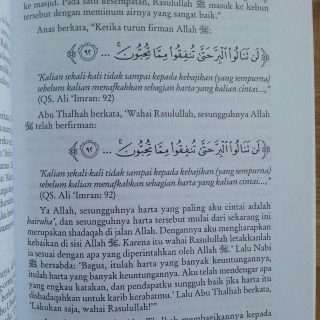 ke masjid. Pada satu kesempatan, Rasulullah ﷺ masuk ke kebun
tersebut dengan meminum airnya yang sangat baik."
Anas berkata, "Ketika turun firman Allah ﷻ:
﴿ لَن تَنَالُوا۟ ٱلْبِرَّ حَتَّىٰ تُنفِقُوا۟ مِمَّا تُحِبُّونَ ۚ ... ﴾ ٩٢
'Kalian sekali-kali tidak sampai kepada kebajikan (yang sempurna)
sebelum kalian menafkahkan sebagian harta yang kalian cintai...,'
(QS. Ali 'Imran: 92)
Abu Thalhah berkata, 'Wahai Rasulullah, sesungguhnya Allah
ﷻ telah berfirman:
﴿ لَن تَنَالُوا۟ ٱلْبِرَّ حَتَّىٰ تُنفِقُوا۟ مِمَّا تُحِبُّونَ ۚ ... ﴾ ٩٢
'Kalian sekali-kali tidak sampai kepada kebajikan (yang sempurna)
sebelum kalian menafkahkan sebagian harta yang kalian cintai...,'
(QS. Ali 'Imran: 92)
Ya Allah, sesungguhnya harta yang paling aku cintai adalah
bairuha', dan sesungguhnya harta tersebut mulai dari sekarang ini
merupakan shadaqah di jalan Allah. Dengannya aku mengharapkan
kebaikan di sisi Allah ﷻ. Karena itu wahai Rasulullah letakkanlah
ia sesuai dengan apa yang diperintahkan oleh Allah ﷻ.' Lalu Nabi
ﷺ bersabda: 'Bagus, itulah harta yang banyak keuntungannya,
itulah harta yang banyak keuntungannya. Aku telah mendengar apa
yang engkau katakan, dan pendapatku sungguh baik jika harta itu
dishadaqahkan untuk karib kerabatmu.' Lalu Abu Thalhah berkata,
'Lakukan saja, wahai Rasulullah!'"
membagikannya kepada